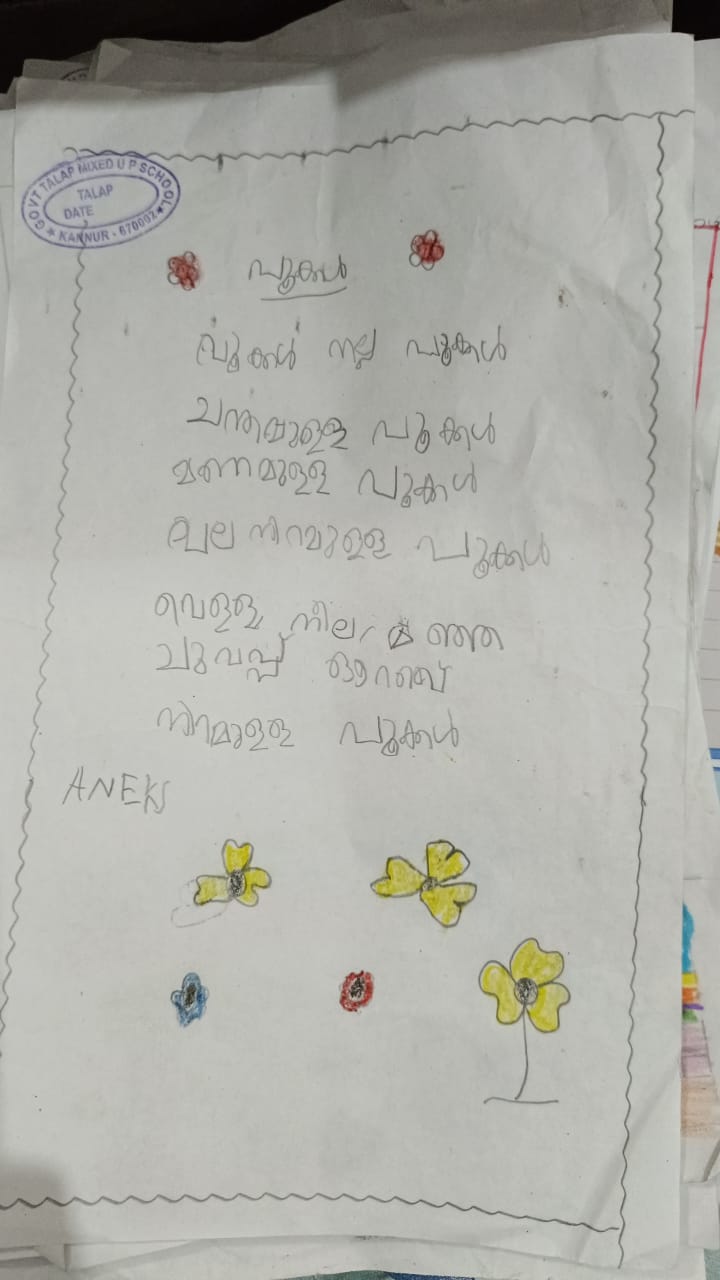 GOVT TALAP MIXED U P SCHOOL
TALAP
DATE
KANNUR - 670002
പൂക്കൾ
പൂക്കൾ നല്ല പൂക്കൾ
ചന്തമുള്ള പൂക്കൾ
മണമുള്ള പൂക്കൾ
പല നിറമുള്ള പൂക്കൾ
വെള്ള, നീല, മഞ്ഞ
ചുവപ്പ് ഓറഞ്ച്
നിറമുള്ള പൂക്കൾ
ANEKS